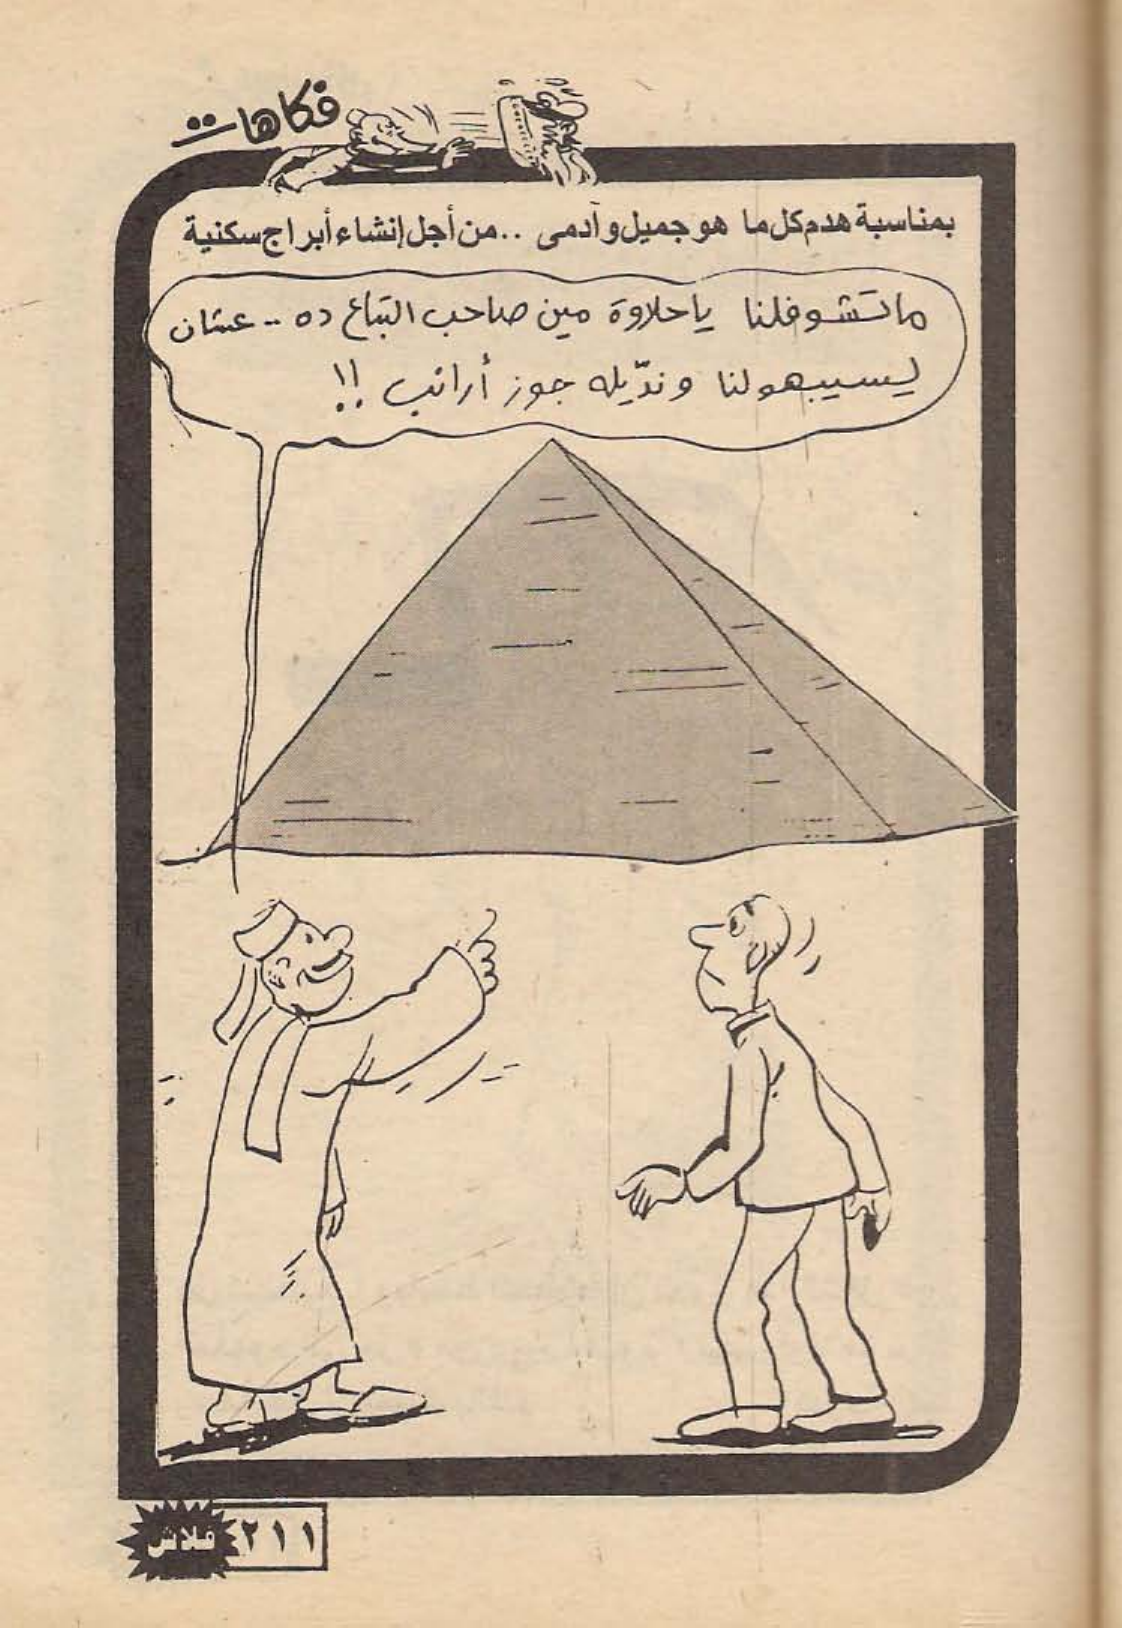 فكاهات
بمناسبة هدم كل ما هو جميل وآدمى .. من أجل إنشاء أبراج سكنية
ماتشوفلنا ياحلاوة مين صاحب البتاع ده .. عشان
ليسيبهولنا ونديله جوز أرانب !!
فلاش ٢١١